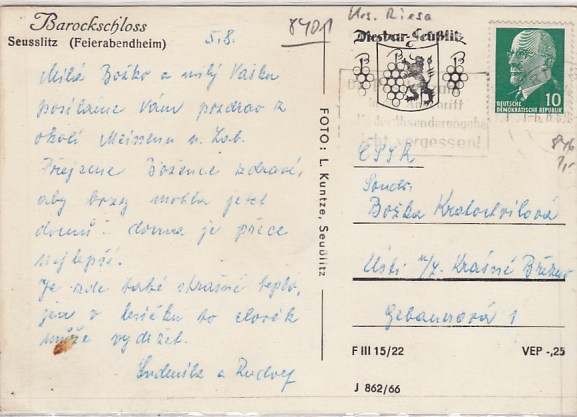 Barockschloss
Seusslitz (Feierabendheim)
8401
Krs. Riesa
Diesbar-Seußlitz
DEUTSCHE
DEMOKRATISCHE REPUBLIK
10
5.8.
Milá Božko a milý Vašku
posíláme Vám pozdrav z
okolí Meissenu n. Lab.
Přejeme Božence zdraví,
aby brzy mohla jet
domů - doma je přece
nejlepší.
Je zde také strašné teplo,
jen v lesíčku to člověk
může vydržet.
Ludmila a Rudolf
FOTO: L. Kuntze, Seußlitz
ČSSR
Soudr.
Božka Kratochvílová
Ústí n/L. Krásné Březno
Gebauerová 1
F III 15/22
VEP -,25
J 862/66